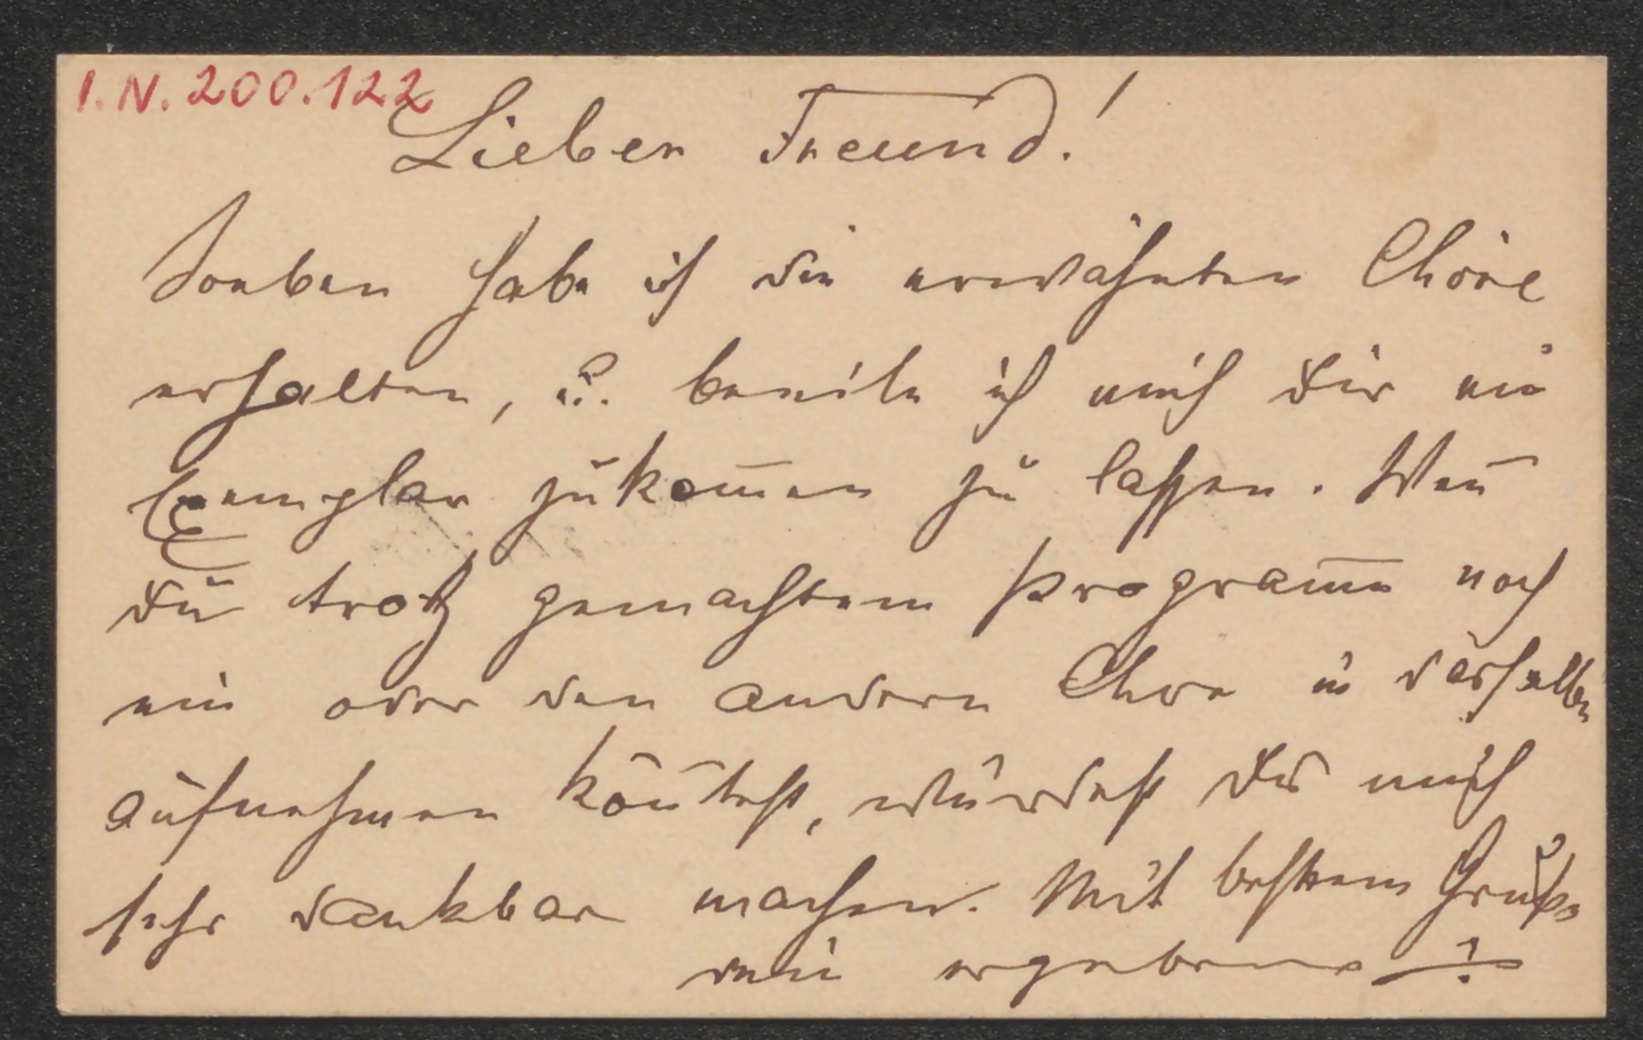 I.N. 200.122
Lieber Freund!
Soeben habe ich die erwähnten Chöre
erhalten, u. beeile ich mich dir ein
Exemplar zukom̄en zu lassen. Wen̄
du trotz gemachtem Program̄e noch
ein oder den andern Chor in dasselbe
aufnehmen kön̄test, würdest du mich
sehr dankbar machen. Mit bestem Gruße
dein ergebener